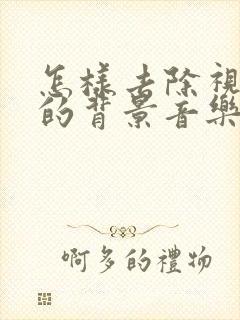 怎樣去除視
的背景音樂
啊多的禮物